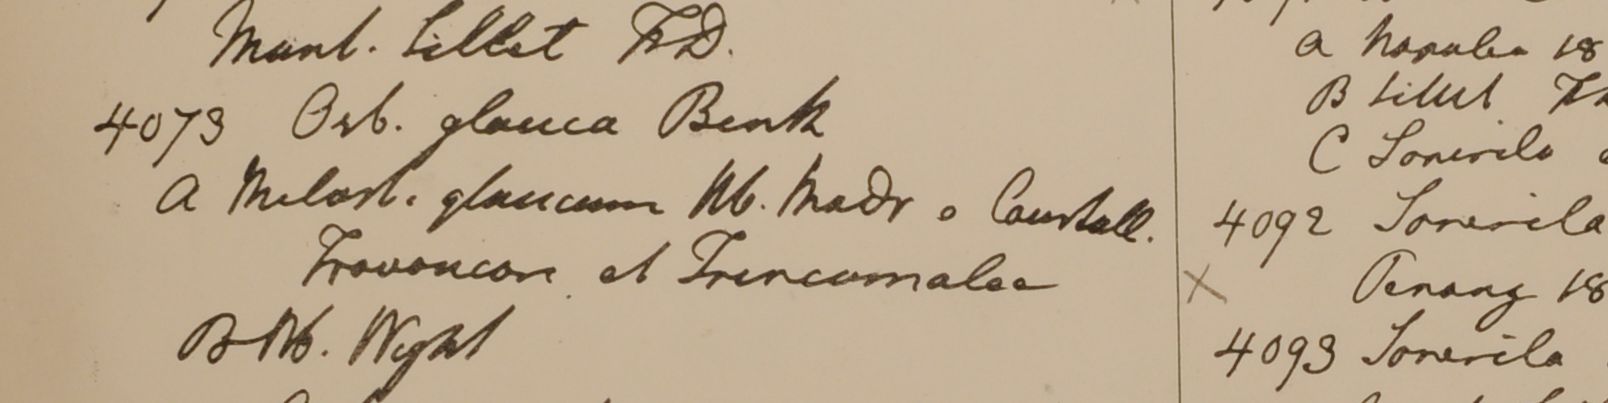 Mont. Sillet F.D.
4073 Osb. glauca Benth
A Melast. glaucum Hb. Madr
Travancore et Trincomalee
B Hb. Wight
A Napalia 18
B Sillet
C Sonerila
4092 Sonerila
Penang 18
4093 Sonerila